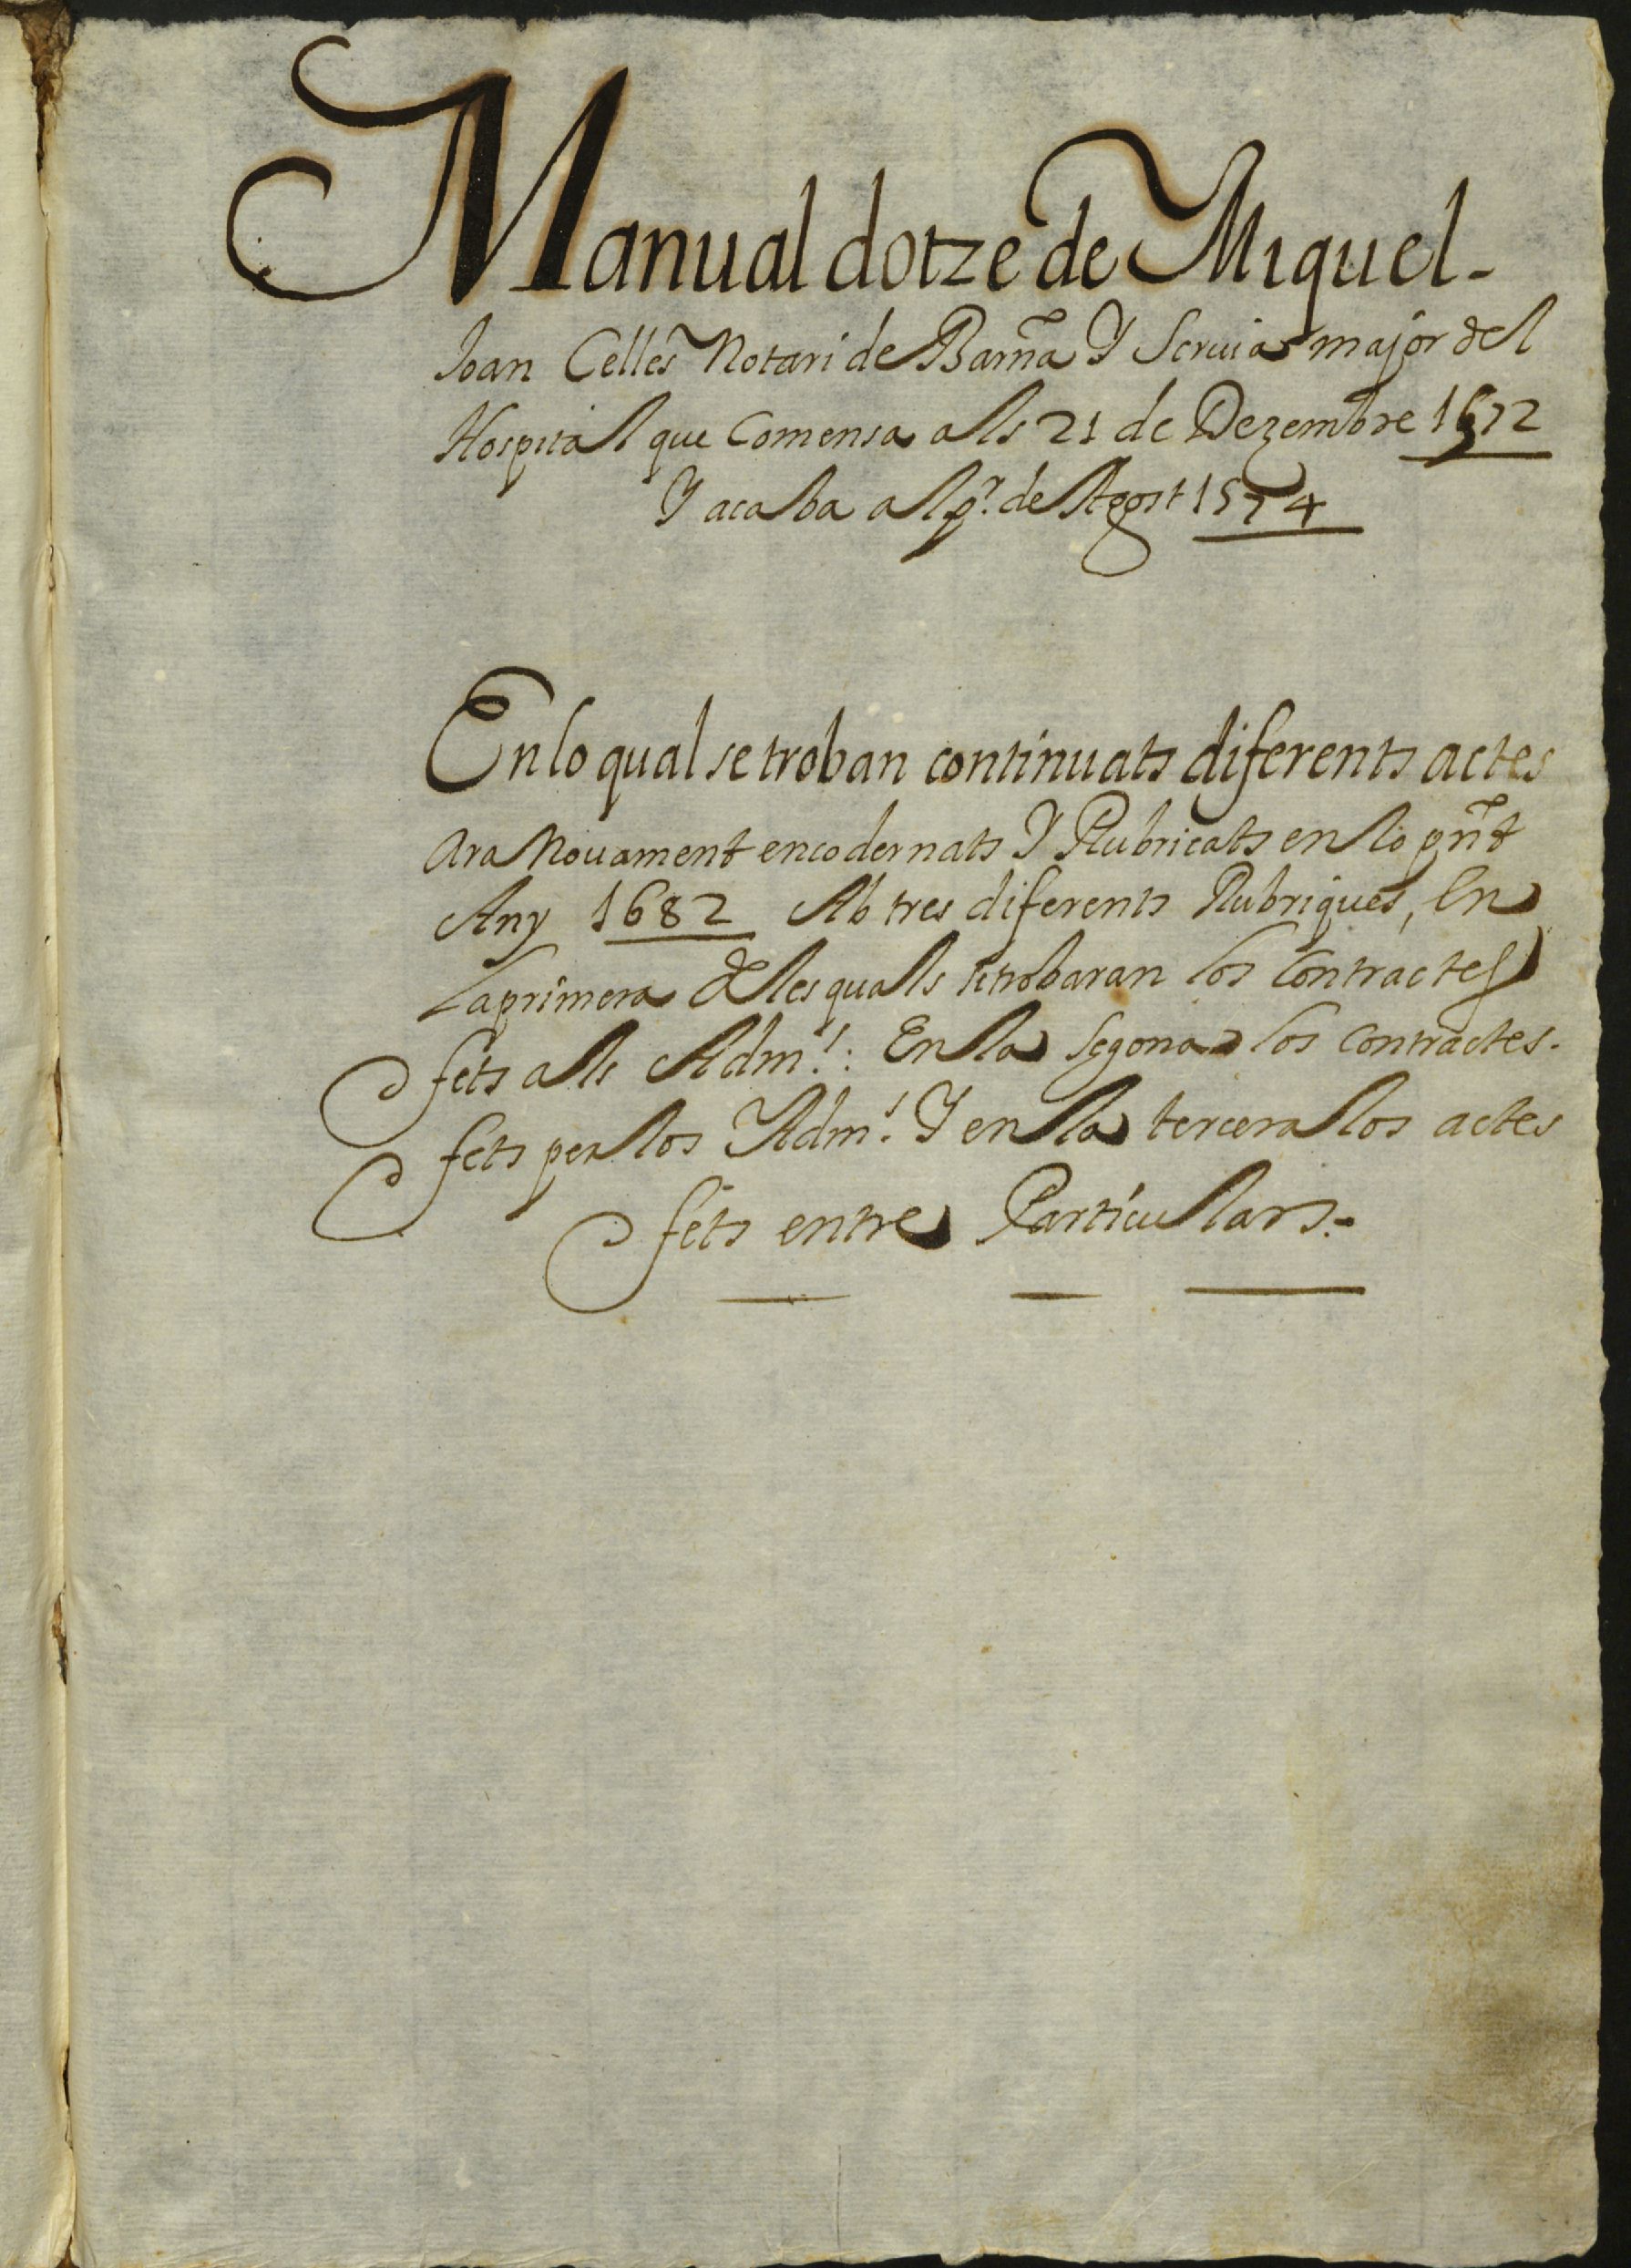 Manual dotze de Miquel-
Joan Celles Notari de Barña Y Scriua major del
Hospital que Comensa als 21 de Dezembre 1572
Y acaba al pr. de Agost 1574
En lo qual se troban continuats diferents actes
Ara Nouament encodernats Y Rubricats en lo pñt
Any 1682 Ab tres diferents Rubriques, En
La primera de les quals se trobaran los Contractes
fets als Adm.rs: En la Segona los Contractes.
fets per los Adm.rs Y en la tercera los actes
fets entre Particulars.-